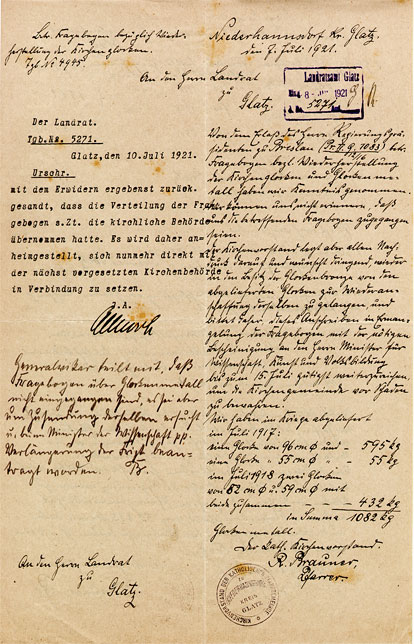 Betr. Fragebogen bezüglich Wieder-
herstellung der Kirchenglocken.
Tgb No 4945
Niederhannsdorf Kr. Glatz.
den 7. Juli 1921.
An den Herrn Landrat
zu
Glatz.
Landratsamt Glatz
8 - 1921
5271
Der Landrat.
Tgb.No. 5271.
Glatz, den 10. Juli 1921.
Urschr.
mit dem Erwidern ergebenst zurück-
gesandt, dass die Verteilung der Fra-
gebogen s.Zt. die kirchliche Behörde
übernommen hatte. Es wird daher an-
heimgestellt, sich nunmehr direkt mit
der nächst vorgesetzten Kirchenbehörde
in Verbindung zu setzen.
J.A.
Generalvikar teilt mit, daß
Fragebogen über Glockenmetall
nicht eingegangen sind, es sei aber
um Zusendung derselben ersucht
u. beim Minister der Wissenschaft pp.
Verlängerung der Frist bean-
tragt worden.
An den Herrn Landrat
zu
Glatz.
Von dem Erlaß des Herrn Regierungsprä-
sidenten zu Breslau betr.
Fragebogen bezl. Wiederherstellung
der Kirchenglocken und Glockenme-
tall haben wir Kenntnis genommen.
Wir können uns nicht erinnern, daß
uns die betreffenden Fragebogen zugegangen
seien.
Der Kirchenvorstand legt aber allen Nach-
druck darauf und wünscht dringend wieder
in den Besitz der Glockenbronze von den
abgelieferten Glocken zur Wiederan-
schaffung derselben zu gelangen und
bittet daher, dieses Anschreiben in Erman-
gelung der Fragebogen mit der nötigen
Bescheinigung an den Herrn Minister für
Wissenschaft, Kunst und Volksbildung
bis zum 15. Juli gütigst weiterzureichen
und die Kirchengemeinde vor Schaden
zu bewahren.
Wir haben im Kriege abgeliefert
im Juli 1917:
eine Glocke von 96 cm Ø und - 595 kg
eine Glocke " 55 cm Ø " - 55 kg
im Juli 1918 zwei Glocken
von 82 cm Ø u. 59 cm Ø mit
beide zusammen - - - 432 kg
in Summa 1082 kg
Glockenmetall.
Der kath. Kirchenvorstand.
R. Brauner,
Pfarrer.
KIRCHENVORSTAND DER KATHOLISCHEN
KREIS
GLATZ